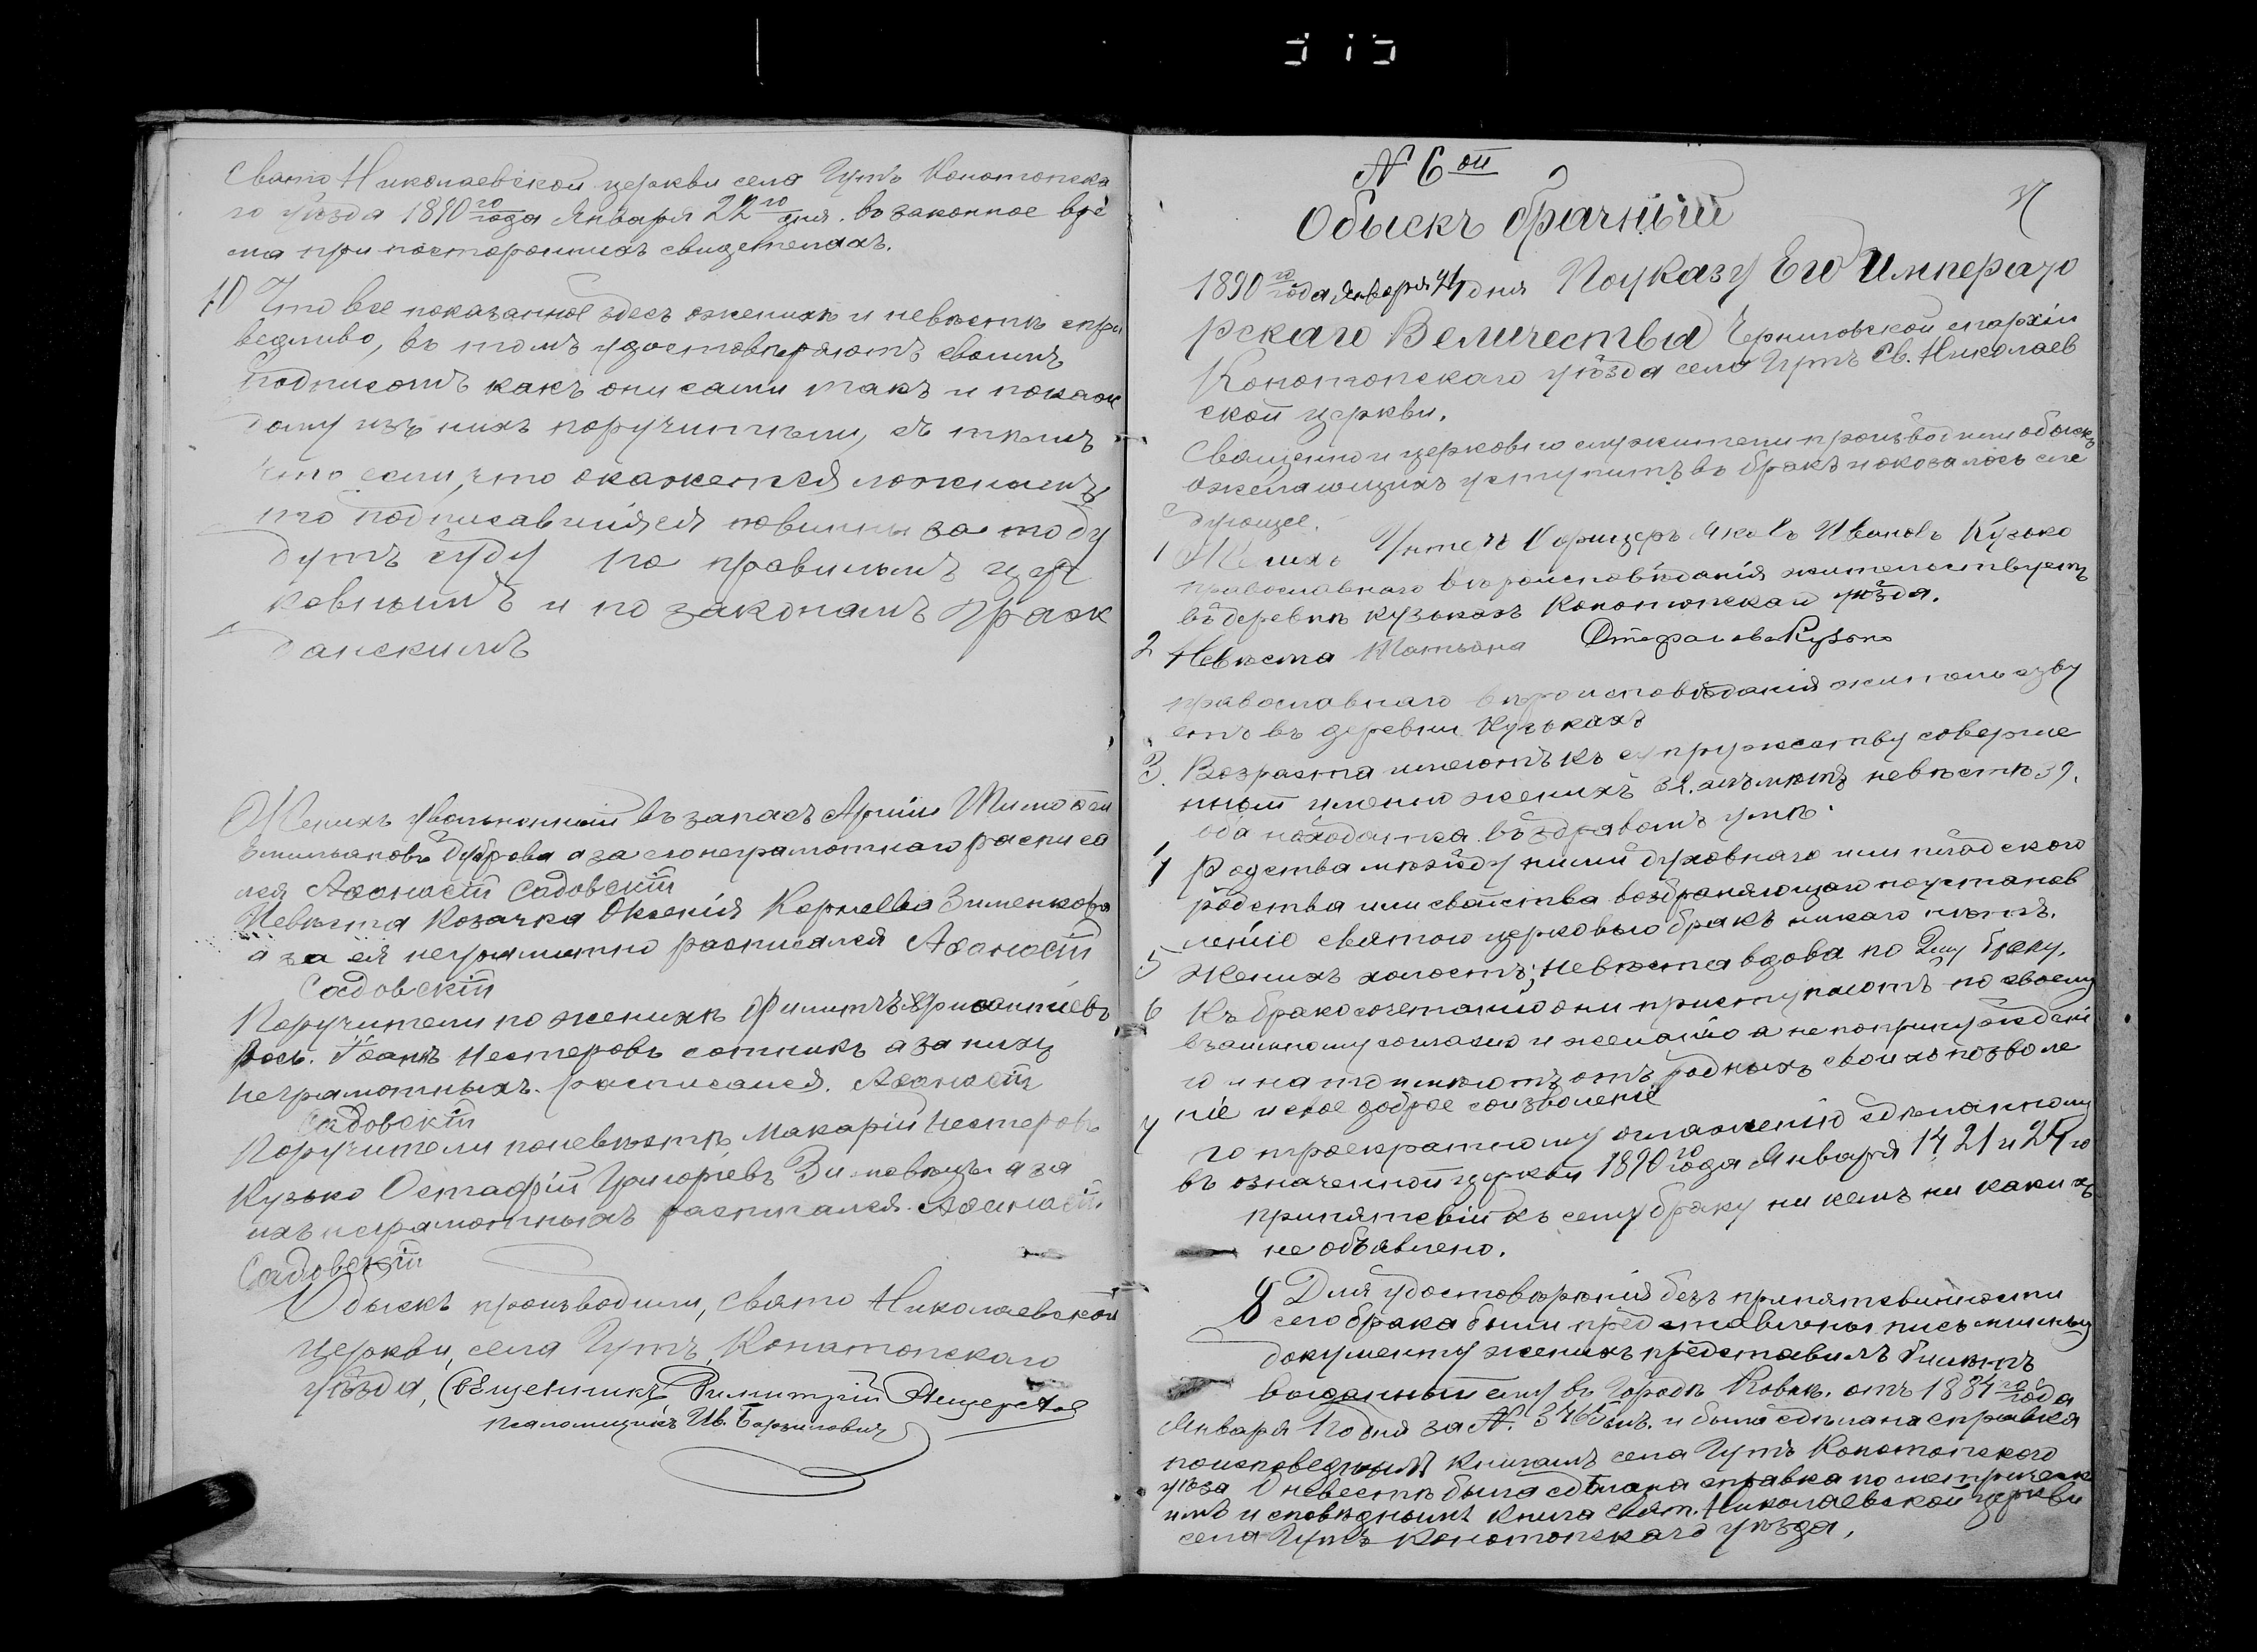 Свято Николаевской церкви села Гутъ Конотопска
го уѣзда 1890го года Января 22го дня. въ законное вре
мя при постороннихъ свидетеляхъ.
10 Что все показанное здесь о женихѣ и невѣстѣ спра
ведливо, въ томъ удостовѣряютъ своимъ
подписомъ какъ они сами такъ и по каж
дому изъ нихъ поручители, съ тѣмъ
что если, что окажется ложнымъ
то подписавшіяся повинны за то бу
дутъ суду по правиламъ цер
ковнымъ и по законамъ граж
данскимъ
Женихъ увольненный въ запасъ Арміи Тимофей
Емильяновъ Дуброва а за его неграмотнаго расписа
лся Афонасій Садовскій
Невѣста Козачка Оксенія Корнеева Зименкова
а за ея неграмотно расписался Афонасій
Садовскій
Поручители по женихѣ Филипъ
Рось. Іоанъ Нестеровъ сотникъ а за нихъ
неграмотныхъ. расписался. Афонасій
Садовскій
Поручители по невѣстѣ, Макарій Нестеровъ
Кузько Остафій Григорьевъ Зиновецъ а за
ихъ неграмотныхъ расписался. Афонасій.
Садовскій
Обыскъ производили, Свято Николаевской
церкви, села Гутъ, Конотопскаго
уѣзда, Священникъ Димитрій
Псаломщикъ Ив. Борзиловичъ
N 6ой
Обыскъ брачный
1890го года Января дня По указу Его Императо
рскаго Величества Черниговской епархіи
Конотопскаго уѣзда села Гутъ Св. Николаев
ской церкви.
Священно и церковно служители производили обыскъ
о желающихъ уступить въ бракъ и оказалось сле
дующее.
1 Женихъ Унтеръ Офицеръ Яковъ Ивановъ Кузько
православнаго вѣроисповѣданія жительствуетъ
въ деревнѣ Кузькахъ Конотопскаго уѣзда.
2 Невѣста Татьяна Стефанова Кузько
православнаго вѣроисповѣданія жительству
етъ въ деревни Кузькахъ
3. Возраста имеютъ къ супружеству соверше
нный именно женихъ 32. лѣтъ невѣстѣ 39.
оба находятся въ здравомъ умѣ.
4 Родства между ними духовнаго или плодскаго
родства или сватства возбраняющаго по установ
ленію святою церковью бракъ никаго нѣтъ.
5 Женихъ холостъ; Невѣста вдова по 2му браку.
6 Къ бракосочетанію они приступаютъ по своему
взаимному согласию и желанію а не по принуждені
ю и на то имѣютъ отъ родныхъ своихъ позволе
ніе и свое доброе соизволеніе
7 по троекратному оглашенію сдѣланному
въ означенной церкви 1890го года Января 14 21 и 24го
припятсвій къ сему браку ни кемъ ни какихъ
не объявлено.
8 Для удостовѣренія безъ припятсвинности
сего брака были представлены письмины
документы женихъ представилъ билѣтъ
выданный ему въ Городѣ Ковнѣ. отъ 1884го года
Января 1го дня за N. 3465ымъ. и была сдѣлана справка
по исповеднымъ книгамъ села Гутъ Конотопскаго
уѣзда О невестѣ была сдѣлана справка по метрическ
имъ и исповѣднымъ книга Свят. Николаевской церкви
села Гутъ Конотопскаго уѣзда.